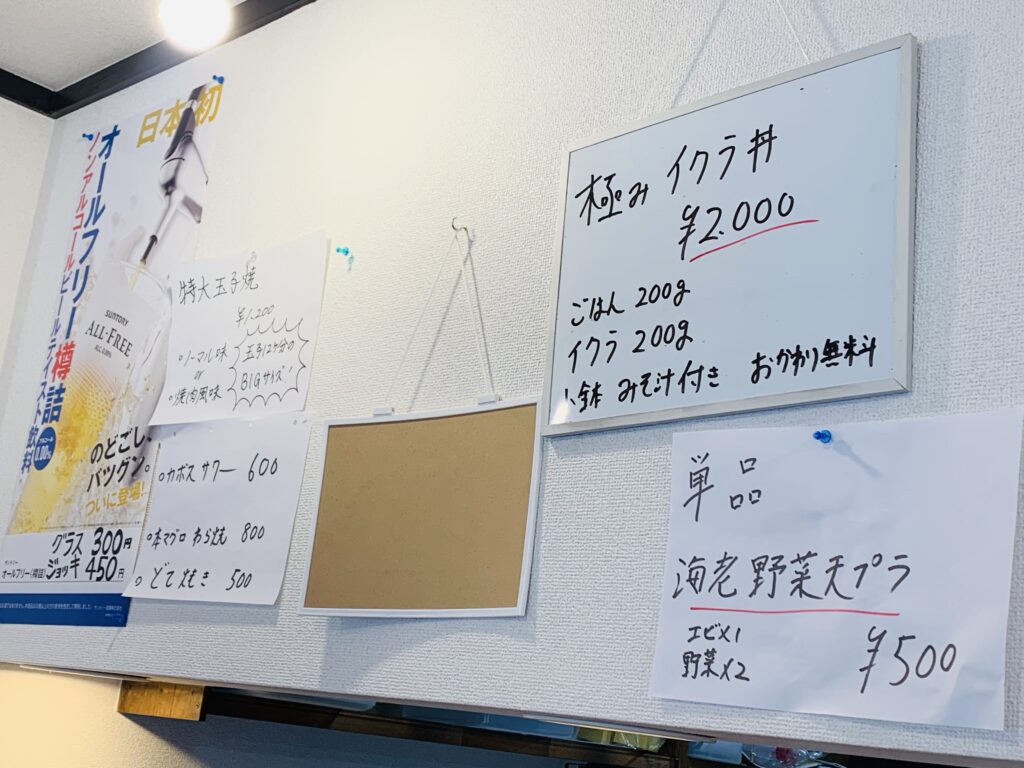 日本初
オールフリー樽詰
ノンアルコールビールテイスト飲料
SUNTORY
ALL-FREE
ALC.0.00%
アルコール
0.00%
のどごし、
バツグン。
ついに登場!
グラス 300円
サントリー
オールフリー(樽詰) ジョッキ 450円
特大玉子焼
¥1,200
○ノーマル味
or
○焼肉風味
玉子12ヶ分の
BIGサイズ!
○カボスサワー 600
○本マグロわら焼 800
○どて焼き 500
極み イクラ丼
¥2.000
ごはん 200g
イクラ 200g
小鉢 みそ汁付き おかわり無料
単品
海老野菜天プラ
エビ×1
野菜×2
¥500